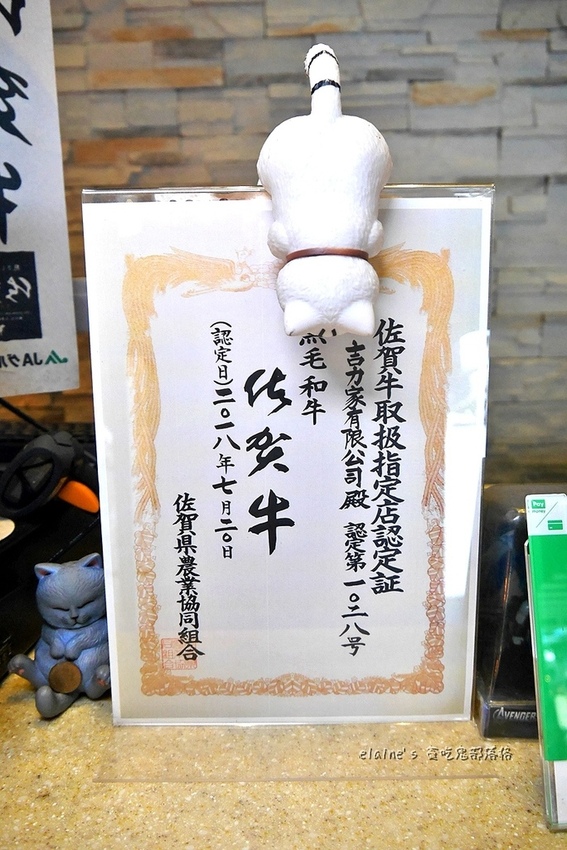 佐賀牛取扱指定店認定証
認定第一〇二八号
吉力家有限公司殿
黒毛和牛
佐賀牛
(認定日)二〇一八年七月二〇日
佐賀県農業協同組合
JA
Pay
AVENGERS
elaine's 貪吃鬼部落格